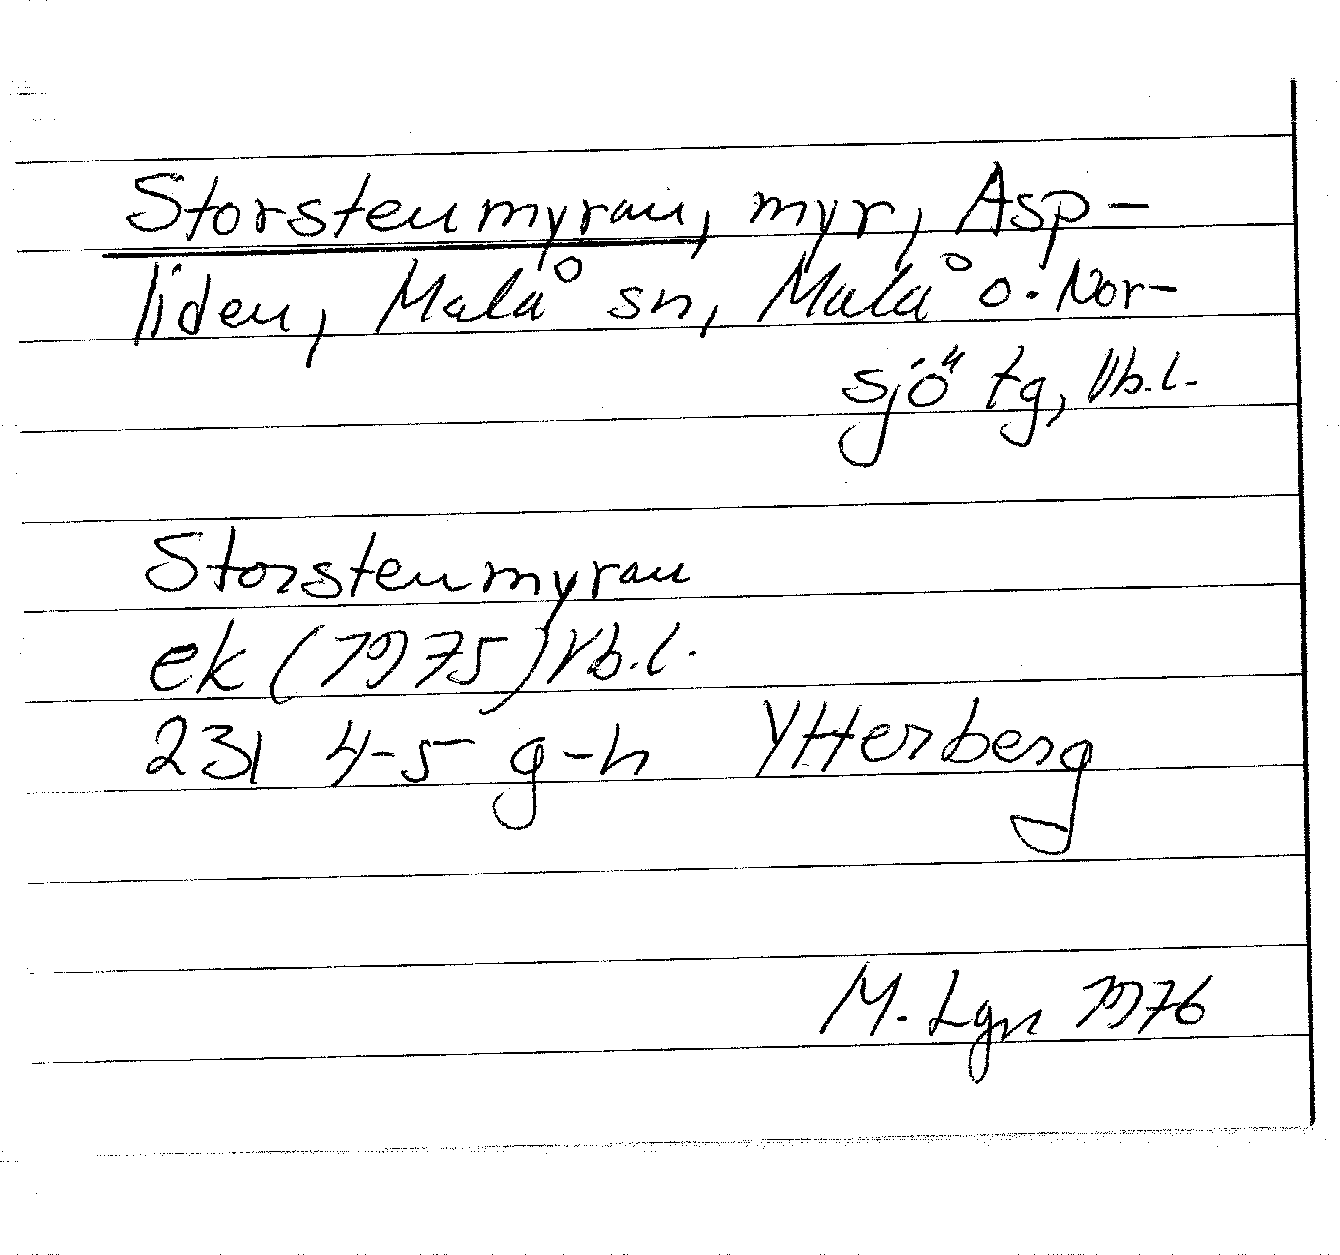 Storstenmyran, myr, Asp-
liden, Malå sn, Malå o. Nor-
sjö tg, Vb.l.
Storstenmyran
ek (1975) Vb.l.
231 4-5 g-h Ytterberg
M. Lgn 1976